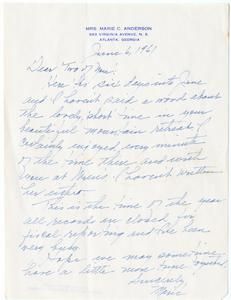 MRS. MARIE C. ANDERSON
VIRGINIA AVENUE, N. E.
ATLANTA, GEORGIA
June 6, 1961
Dear
Here 'tis six days into June
and I haven't said a word about
the lovely, short time in your
beautiful mountain retreat. I
certainly enjoyed every minute
of the time there and
I haven't written
her either.
This is the time of the year
all records are closed, for
fiscal reporting and I've been
very busy.
Hope we may sometime
have a little more time together.
Sincerely,
Marie